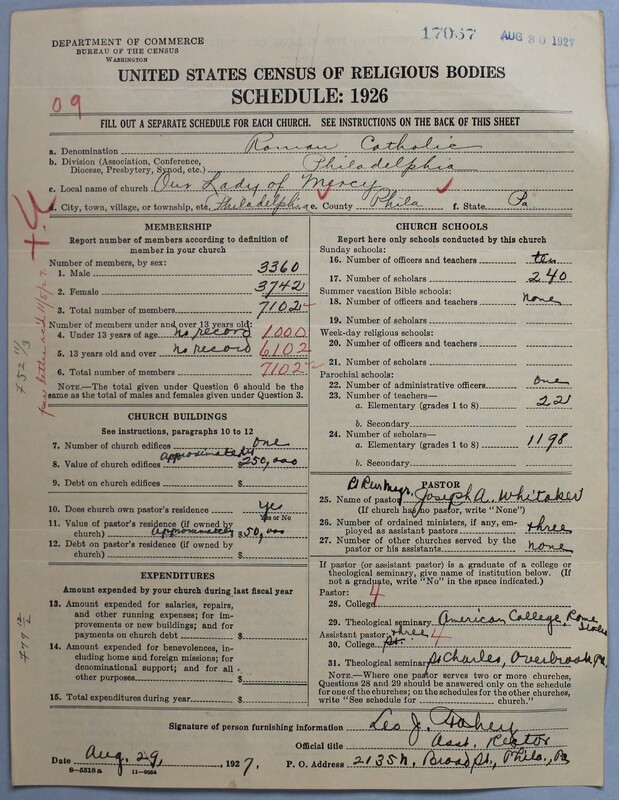 17057 AUG 30 1927
DEPARTMENT OF COMMERCE
BUREAU OF THE CENSUS
WASHINGTON
UNITED STATES CENSUS OF RELIGIOUS BODIES
SCHEDULE: 1926
09
FILL OUT A SEPARATE SCHEDULE FOR EACH CHURCH. SEE INSTRUCTIONS ON THE BACK OF THIS SHEET
a. Denomination Roman Catholic
b. Division (Association, Conference, Diocese, Presbytery, Synod, etc.) Philadelphia
c. Local name of church Our Lady of Mercy
d. City, town, village, or township, etc. Philadelphia e. County Phila f. State Pa
MEMBERSHIP
Report number of members according to definition of
member in your church
Number of members, by sex:
1. Male 3360
2. Female 3742
3. Total number of members 7102
Number of members under and over 13 years old:
4. Under 13 years of age no record 1000
5. 13 years old and over no record 6102
6. Total number of members 7102
NOTE.—The total given under Question 6 should be
same as the total of males and females given under Question 3.
per letter
752 11/3
CHURCH BUILDINGS
See instructions, paragraphs 10 to 12
7. Number of church edifices one
8. Value of church edifices approximately $250,000
9. Debt on church edifices $
10. Does church own pastor's residence Yes
Yes or No
11. Value of pastor's residence (if owned by
church) approximately $50,000
12. Debt on pastor's residence (if owned by
church) $
EXPENDITURES
Amount expended by your church during last fiscal year
13. Amount expended for salaries, repairs,
and other running expenses; for im-
provements or new buildings; and for
payments on church debt $
14. Amount expended for benevolences,
including home and foreign missions; for
denominational support; and for all
other purposes $
15. Total expenditures during year $
777 12/2
CHURCH SCHOOLS
Report here only schools conducted by this church
Sunday schools:
16. Number of officers and teachers ten
17. Number of scholars 240
Summer vacation Bible schools:
18. Number of officers and teachers none
19. Number of scholars
Week-day religious schools:
20. Number of officers and teachers
21. Number of scholars
Parochial schools:
22. Number of administrative officers one
23. Number of teachers—
a. Elementary (grades 1 to 8) 22
b. Secondary
24. Number of scholars—
a. Elementary (grades 1 to 8) 1198
b. Secondary
PASTOR
25. Name of pastor Rt Rev Msgr. Joseph A. Whitaker
(If church has no pastor, write "None")
26. Number of ordained ministers, if any, em-
ployed as assistant pastors three
27. Number of other churches served by the
pastor or his assistants none
If pastor (or assistant pastor) is a graduate of a college or
theological seminary, give name of institution below. (If
not a graduate, write "No" in the space indicated.)
Pastor:
28. College 4
29. Theological seminary American College, Rome
Assistant pastor: three
30. College 4
31. Theological seminary St Charles, Overbrook, Pa.
NOTE.—Where one pastor serves two or more churches,
Questions 28 and 29 should be answered only on the schedule
for one of the churches; on the schedules for the other churches,
write "See schedule for church."
Signature of person furnishing information Leo J. Fahey
Official title Asst. Rector
Date Aug. 29, 1927. P. O. Address 2135 N. Broad St., Phila., Pa
6—5518a 11—9054